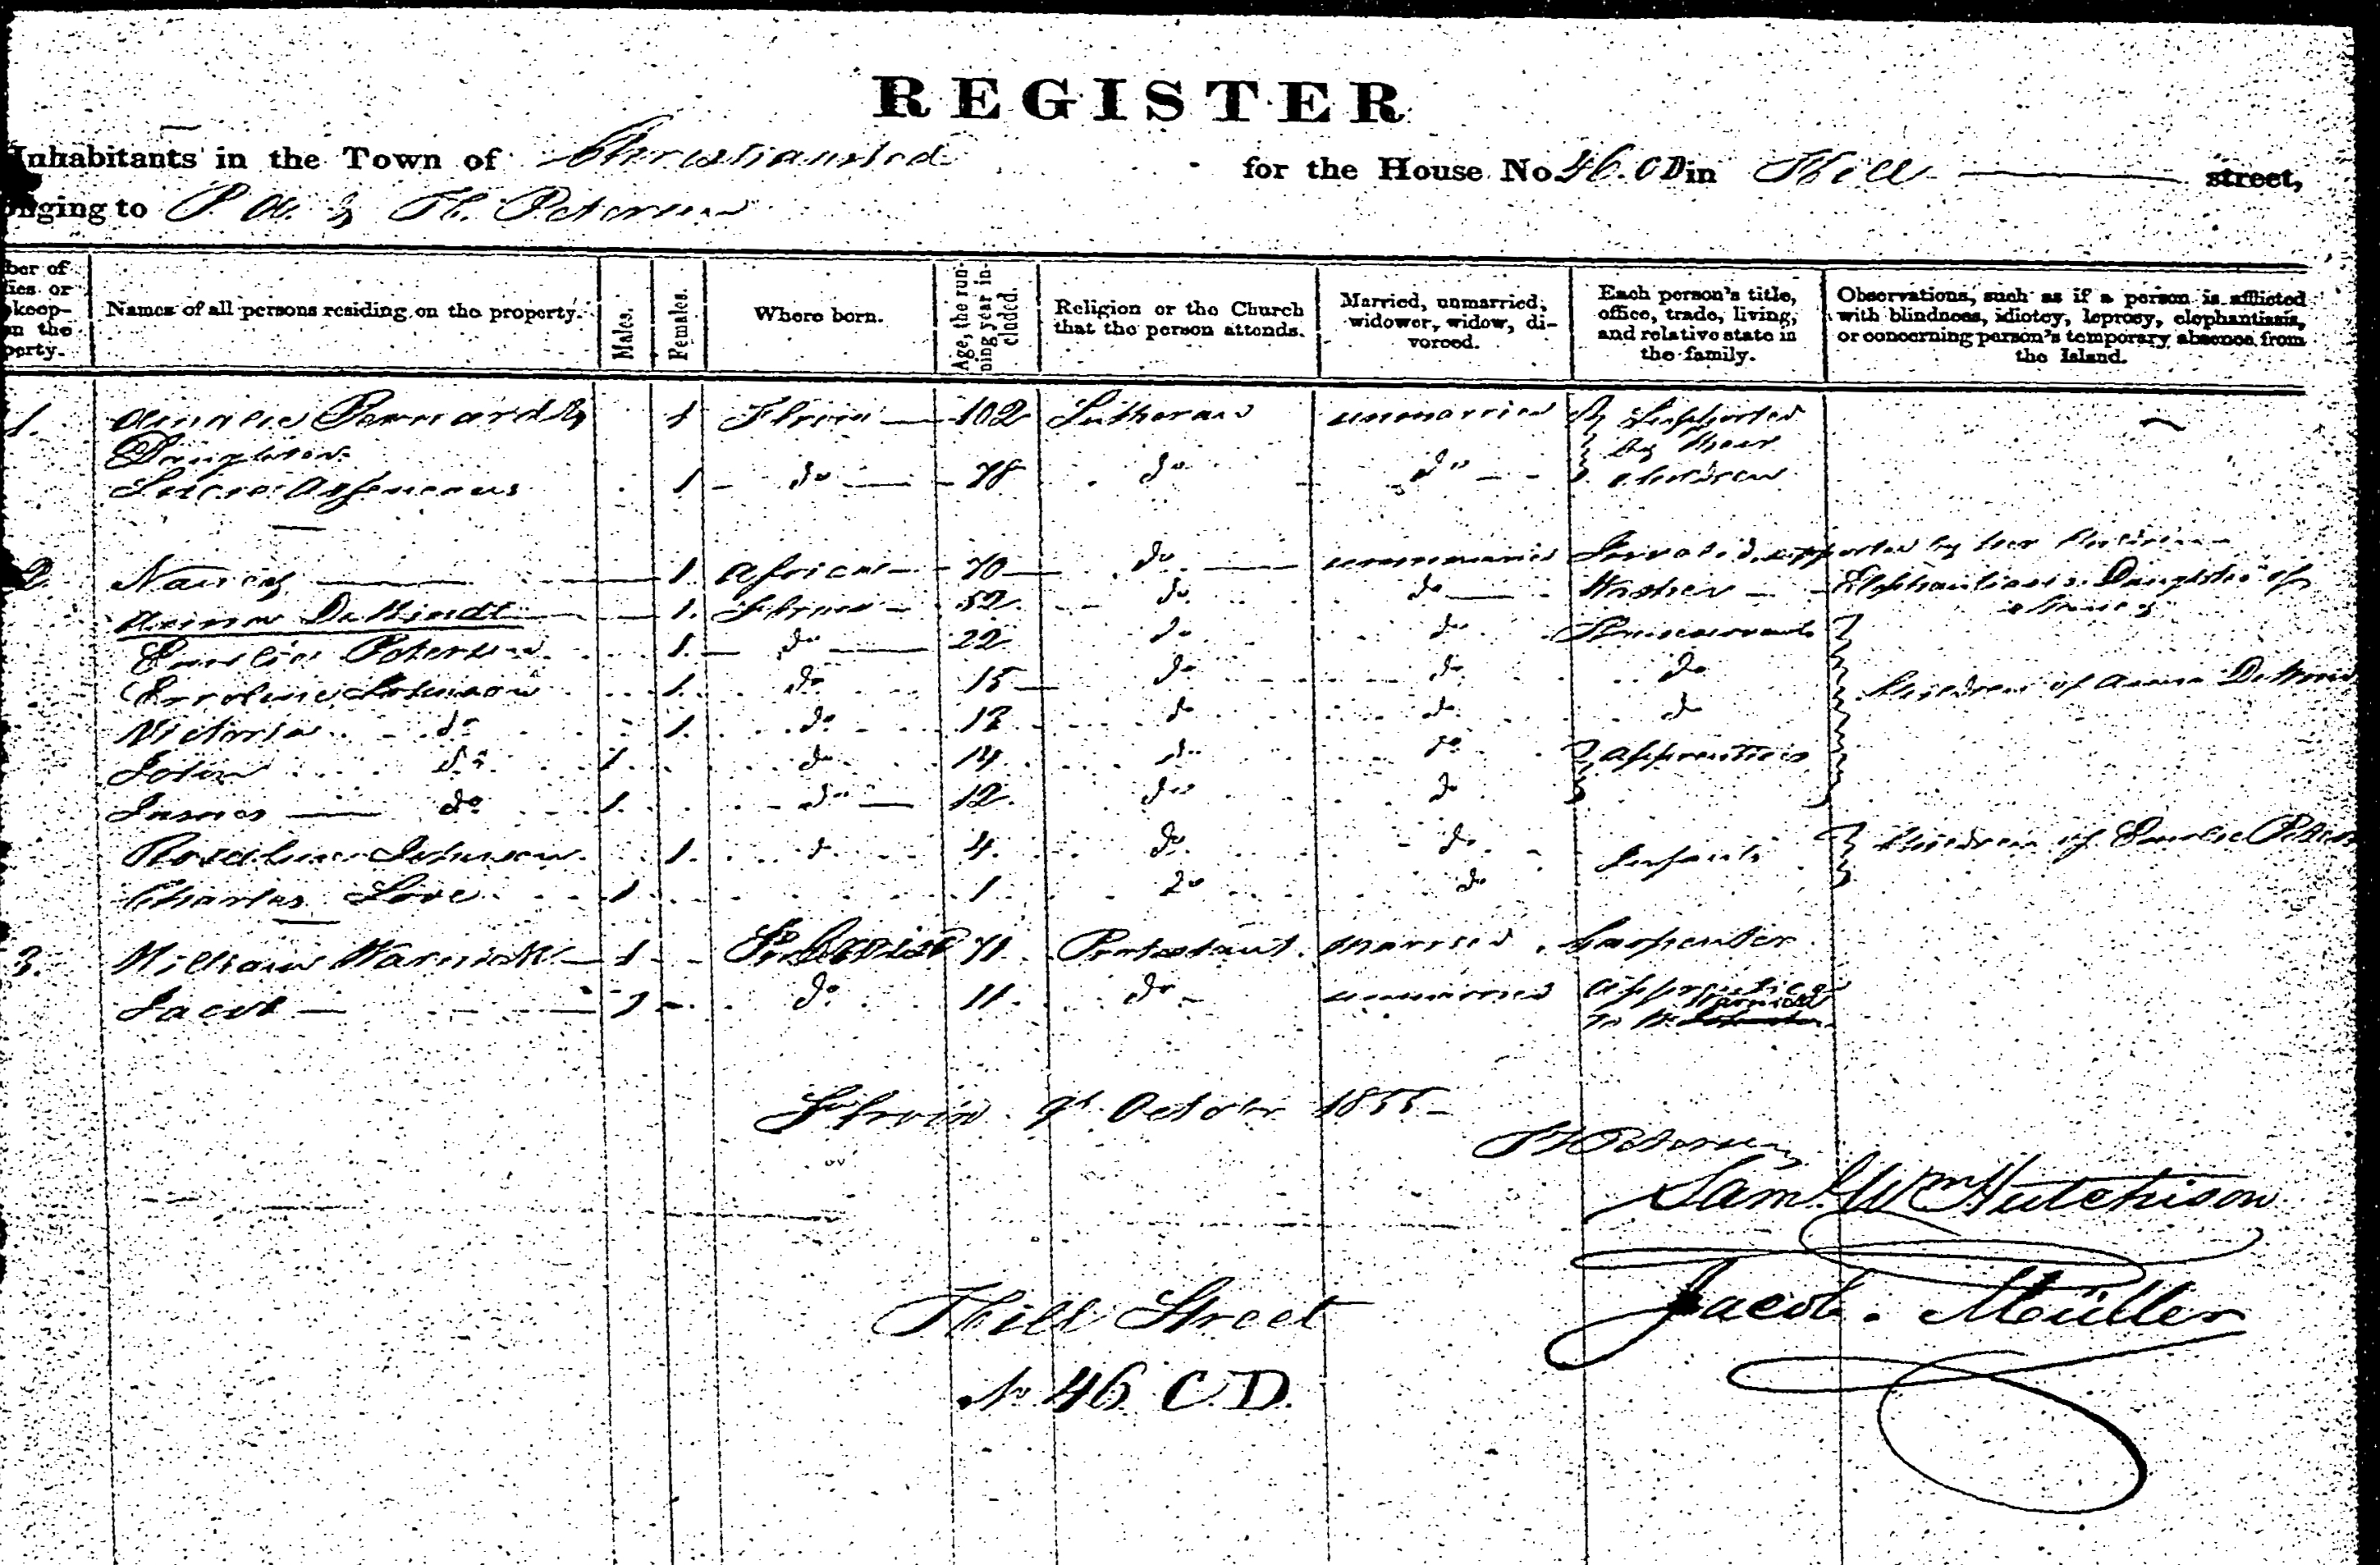 REGISTER
Inhabitants in the Town of Christiansted for the House No 46. CD in Hill street,
nging to P. A. & Th. Petersen
ber of
ies or
keep-
on the
perty.
Names of all persons residing on the property.
Males.
Females.
Where born.
Age, the run-
ning year in-
cluded.
Religion or the Church
that the person attends.
Married, unmarried,
widower, widow, di-
vorced.
Each person's title,
office, trade, living,
and relative state in
the family.
Observations, such as if a person is afflicted
with blindness, idiotcy, leprosy, elephantiasis,
or concerning person's temporary absence from
the Island.
1. Bernard & 1 102 Lutheran unmarried Supported
Daughter by their
1 do 78 do do children
2. Nancy 1 African 70 do unmarried supported by her Children
Anna DeWindt 1. 52 do do Washer Elephantiasis. Daughter of
Nancy
Emelia Petersen 1. do 22 do do Houseservant
Johnson 1. do 15 do do do Children of Anna DeWindt
Victoria do 1. do 12 do do do
John do 1. do 14 do do apprentices
James do 1. do 12. do do
Johnson 1. do 4. do do Infants Children of Emelie Petersen
Charles Love 1 1 do do
3. William Warnick 1 71 Protestant married Carpenter
Jacob 1 do 11. do unmarried apprentice
Warnick
to W.
9t October 1855
Petersen
Saml. Wm Hutchison
Jacob. Müller
Hill Street
No 46 C.D.